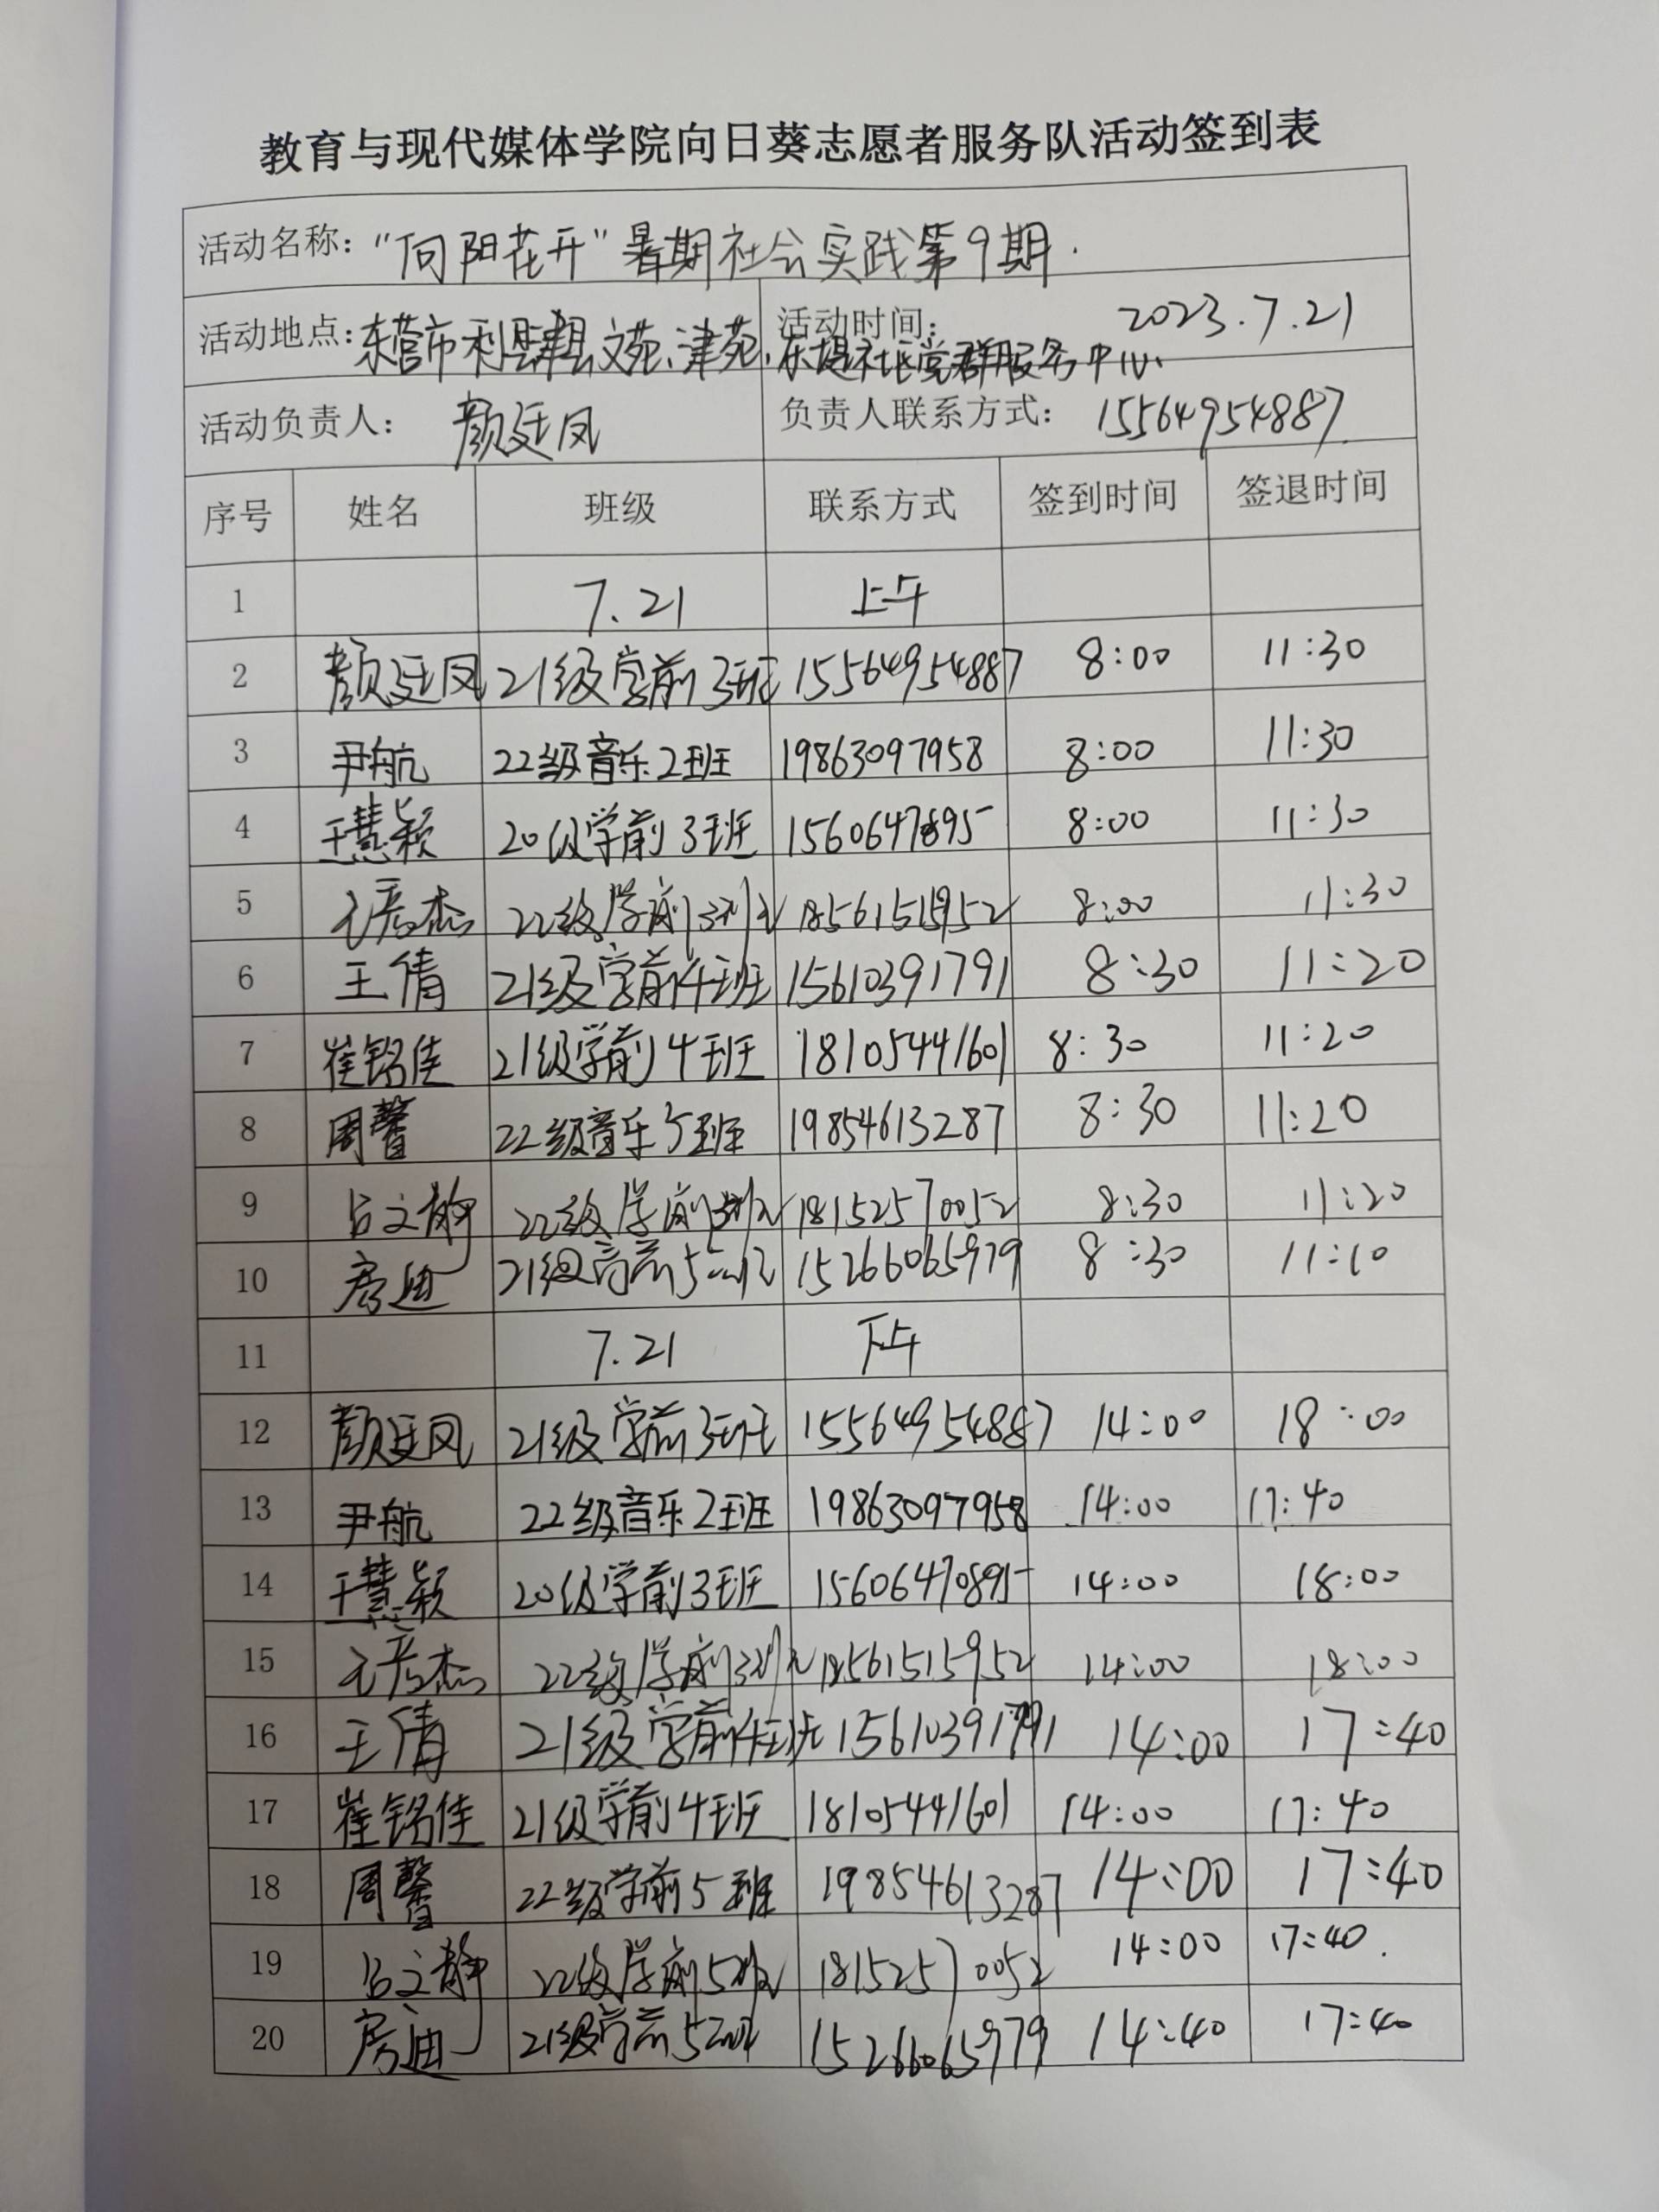 教育与现代媒体学院向日葵志愿者服务队活动签到表
活动名称："向阳花开"暑期社会实践第9期.
活动地点：东营市利津县文苑、津苑、东堤社区党群服务中心 活动时间： 2023.7.21
活动负责人： 颜廷凤 负责人联系方式： 15564954887
序号 姓名 班级 联系方式 签到时间 签退时间
1 7.21 上午
2 颜廷凤 21级学前3班 15564954887 8:00 11:30
3 尹航 22级音乐2班 19863097958 8:00 11:30
4 王慧颖 20级学前3班 1560647895 8:00 11:30
5 22级学前3班 18561515952 8:00 11:30
6 王倩 21级学前4班 15610391791 8:30 11:20
7 崔铭佳 21级学前4班 18105441601 8:30 11:20
8 周馨 22级音乐5班 19854613287 8:30 11:20
9 吕文静 22级学前班 18152570052 8:30 11:20
10 房迪 21级学前5班 15266065979 8:30 11:10
11 7.21 下午
12 颜廷凤 21级学前3班 15564954887 14:00 18:00
13 尹航 22级音乐2班 19863097958 14:00 17:40
14 王慧颖 20级学前3班 15606470895 14:00 18:00
15 22级学前3班 18561515952 14:00 18:00
16 王倩 21级学前4班 15610391791 14:00 17:40
17 崔铭佳 21级学前4班 18105441601 14:00 17:40
18 周馨 22级学前5班 19854613287 14:00 17:40
19 吕文静 22级学前5班 18152570052 14:00 17:40.
20 房迪 21级学前5班 15266065979 14:40 17:40